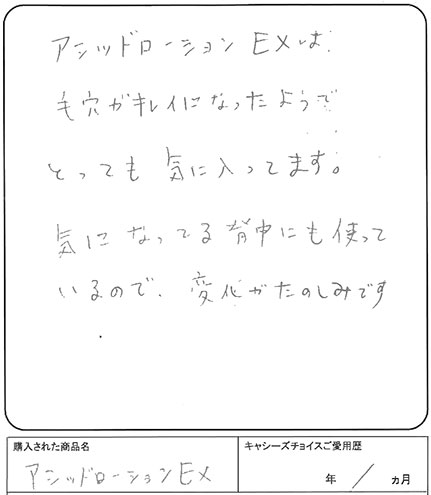 アシッドローションEXは
毛穴がキレイになったようで
とっても気に入ってます。
気になってる背中にも使って
いるので、変化がたのしみです
購入された商品名
キャシーズチョイスご愛用歴
アシッドローションEX
年 / ヵ月